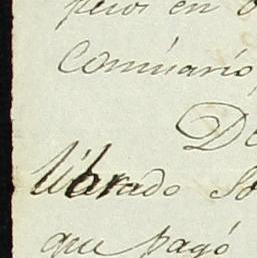 pesos en
Comisario,
De
librado So
que pagó